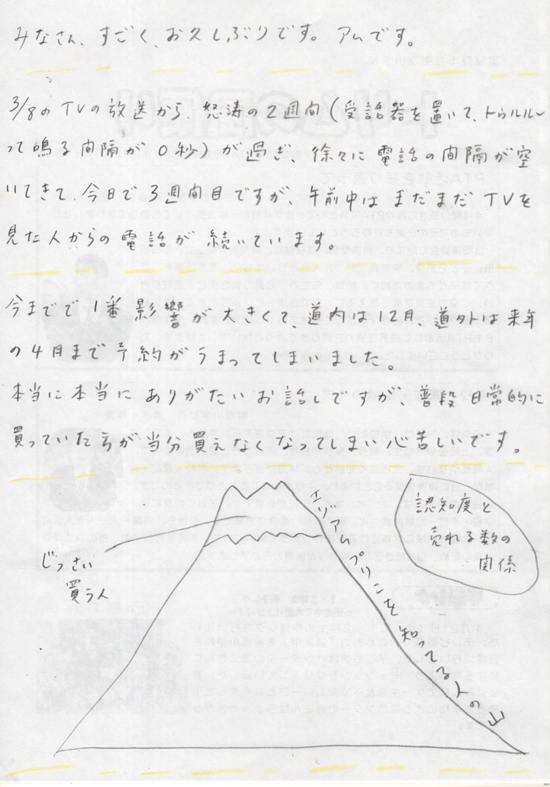 みなさん、すごく、お久しぶりです。アムです。
3/8のTVの放送から、怒涛の2週間(受話器を置いて、トゥルルル〜
って鳴る間隔が0秒)が過ぎ、徐々に電話の間隔が空
いてきて、今日で3週間目ですが、午前中はまだまだTVを
見た人からの電話が続いています。
今までで1番影響が大きくて、道内は12月、道外は来年
の4月まで予約がうまってしまいました。
本当に本当にありがたいお話しですが、普段日常的に
買っていた方が当分買えなくなってしまい心苦しいです。
認知度と
売れる数の
関係
じっさい
買う人
エゾアムプリンを知ってる人の山